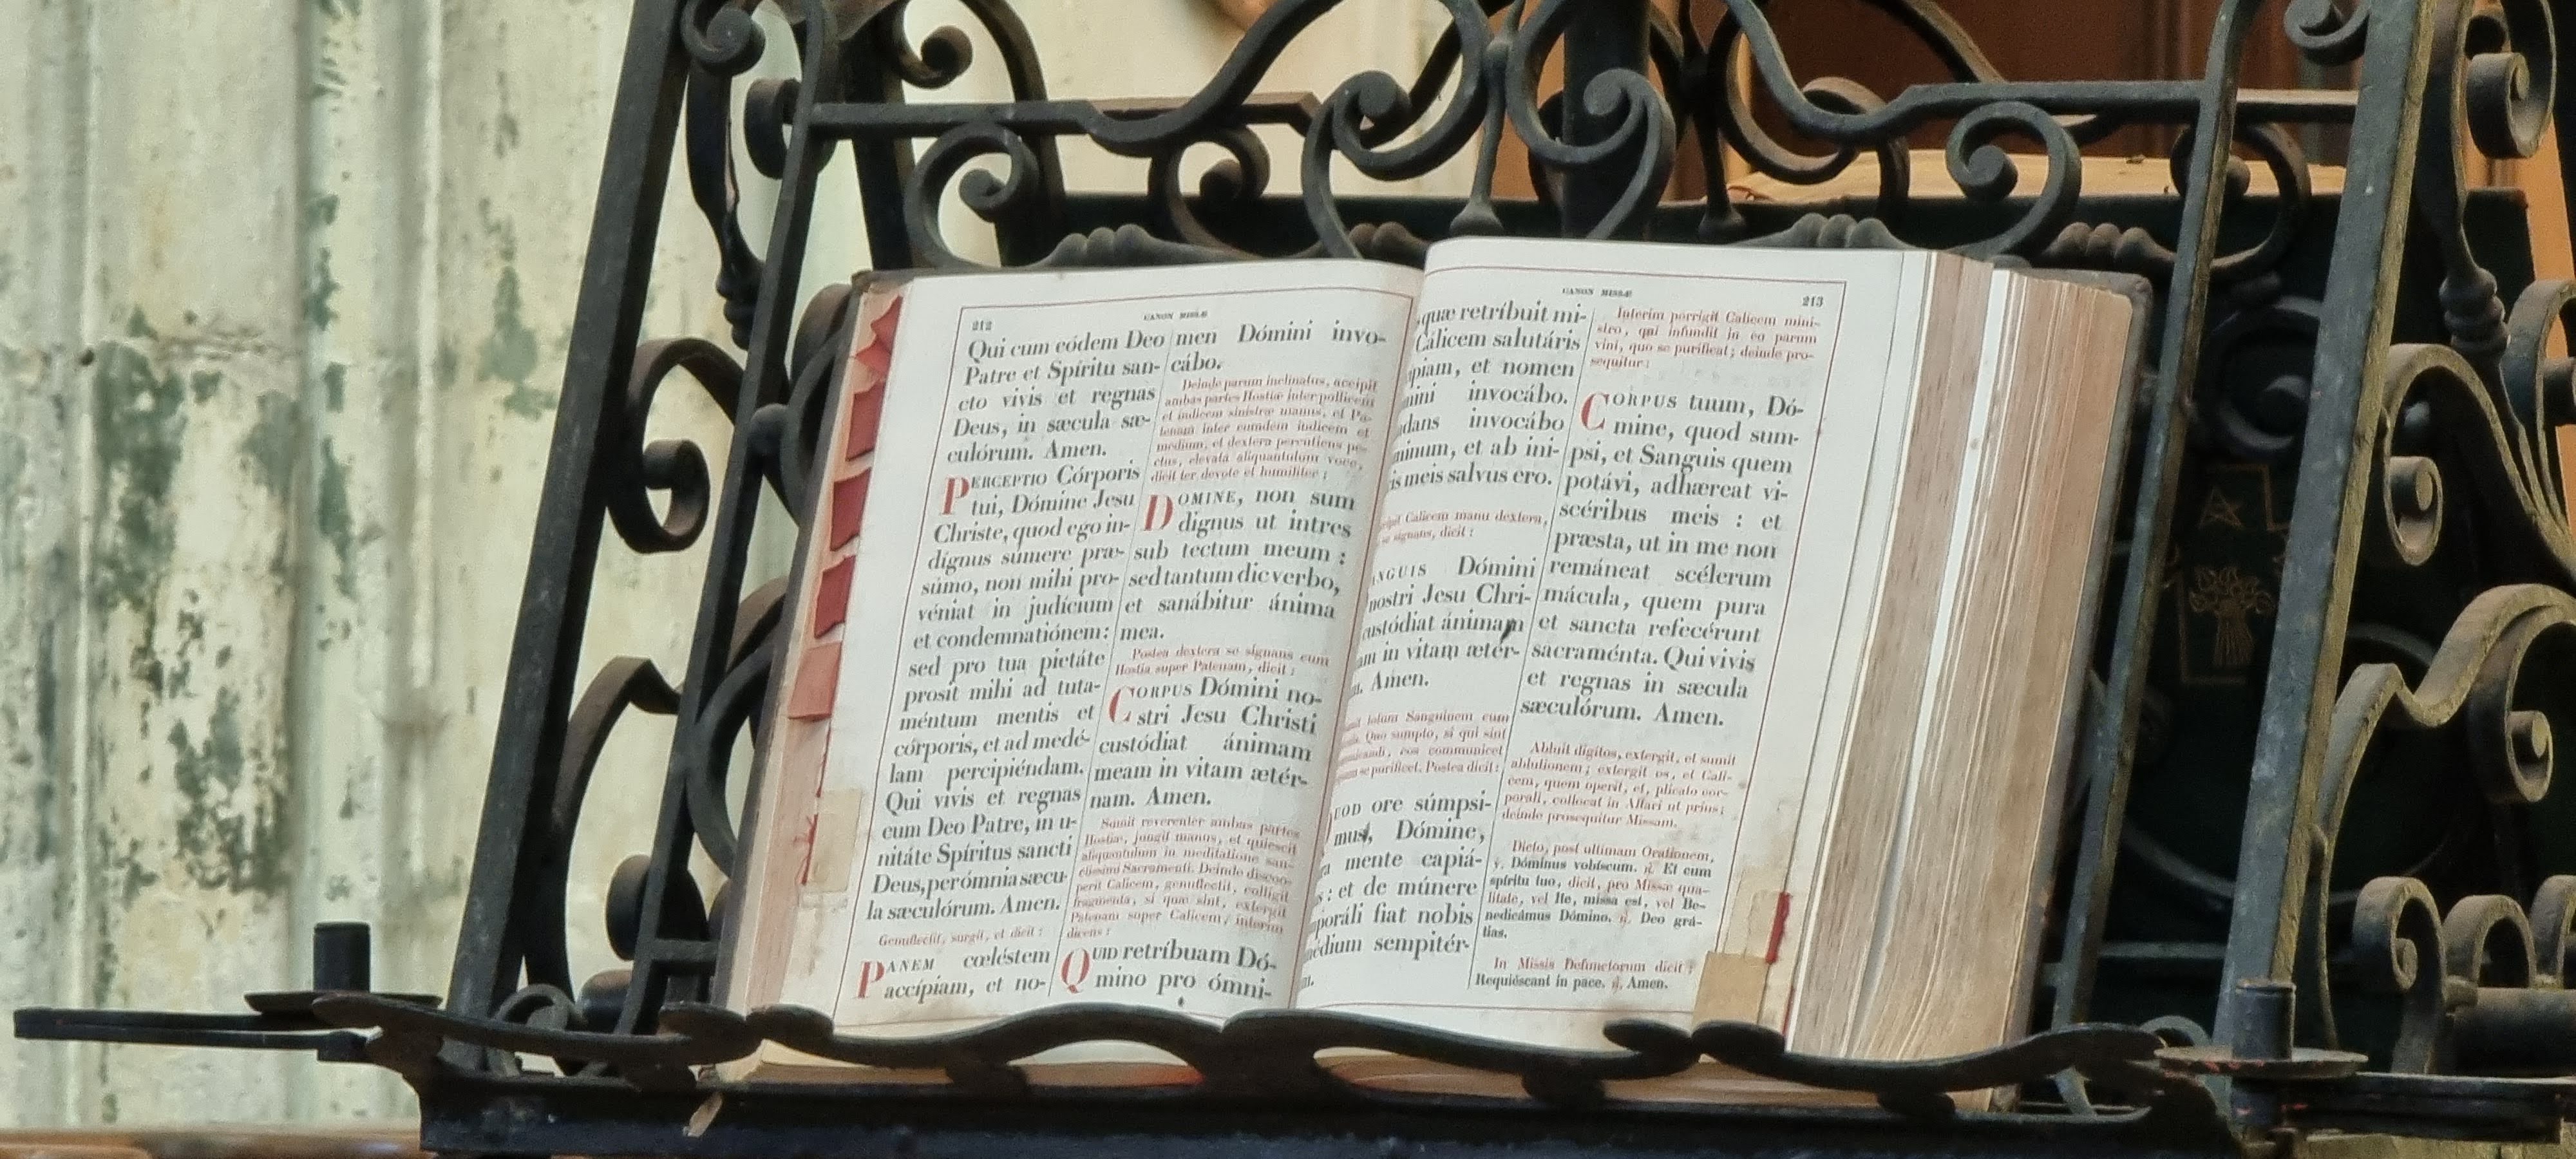 212
CANON MISSÆ
Qui cum eódem Deo
Patre et Spíritu san-
cto vivis et regnas
Deus, in sæcula sæ-
culórum. Amen.
PERCEPTIO Córporis
tui, Dómine Jesu
Christe, quod ego in-
dígnus súmere præ-
súmo, non mihi pro-
véniat in judícium
et condemnatiónem:
sed pro tua pietáte
prosit mihi ad tuta-
méntum mentis et
córporis, et ad medé-
lam percipiéndam.
Qui vivis et regnas
cum Deo Patre, in u-
nitáte Spíritus sancti
Deus, per ómnia sæcu-
la sæculórum. Amen.
Genuflectit, surgit, et dicit:
PANEM cœléstem
accípiam, et no-
men Dómini invo-
cábo.
Deinde parum inclinatus, accipit
ambas partes Hostiæ inter pollicem
et indicem sinistræ manus, et Pa-
tenam inter eumdem indicem et
medium, et dextera percutiens pe-
ctus, elevata aliquantulum voce,
dicit ter devote et humiliter:
DOMINE, non sum
dignus ut intres
sub tectum meum:
sed tantum dic verbo,
et sanábitur ánima
mea.
Postea dextera se signans cum
Hostia super Patenam, dicit:
CORPUS Dómini no-
stri Jesu Christi
custódiat ánimam
meam in vitam ætér-
nam. Amen.
Sumit reverenter ambas partes
Hostiæ, jungit manus, et quiescit
aliquantulum in meditatione san-
ctissimi Sacramenti. Deinde discoo-
perit Calicem, genuflectit, colligit
fragmenta, si quæ sint, extergit
Patenam super Calicem, interim
dicens:
QUID retríbuam Dó-
mino pro ómni-
CANON MISSÆ
213
quæ retríbuit mi-
Cálicem salutáris
piam, et nomen
mini invocábo.
dans invocábo
minum, et ab ini-
is meis salvus ero.
Calicem manu dextera,
se signans, dicit:
NGUIS Dómini
nostri Jesu Chri-
custódiat ánimam
am in vitam ætér-
Amen.
totum Sanguinem cum
Quo sumpto, si qui sint
communicandi, eos communicet
se purificet. Postea dicit:
UOD ore súmpsi-
mus, Dómine,
mente capiá-
s: et de múnere
poráli fiat nobis
édium sempitér-
Interim porrigit Calicem mini-
stro, qui infundit in eo parum
vini, quo se purificat; deinde pro-
sequitur:
CORPUS tuum, Dó-
mine, quod sum-
psi, et Sanguis quem
potávi, adhæreat vi-
scéribus meis : et
præsta, ut in me non
remáneat scélerum
mácula, quem pura
et sancta refecérunt
sacraménta. Qui vivis
et regnas in sæcula
sæculórum. Amen.
Abluit digitos, extergit, et sumit
ablutionem; extergit os, et Cali-
cem, quem operit, et, plicato cor-
porali, collocat in Altari ut prius;
deinde prosequitur Missam.
Dicto, post ultimam Orationem,
℣. Dóminus vobíscum. ℟. Et cum
spíritu tuo, dicit, pro Missæ qua-
litate, vel Ite, missa est, vel Be-
nedicámus Dómino. ℟. Deo grá-
tias.
In Missis Defunctorum dicit:
Requiéscant in pace. ℟. Amen.